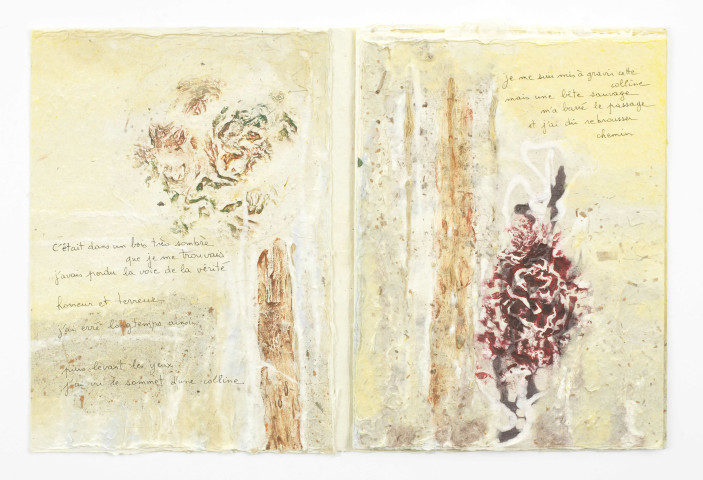 C'était dans un bois très sombre
que je me trouvais
j'avais perdu la voie de la vérité
horreur et terreur
j'ai erré longtemps ainsi
puis levant les yeux
j'ai vu le sommet d'une colline
je me suis mis à gravir cette
colline
mais une bête sauvage
m'a barré le passage
et j'ai dû rebrousser
chemin